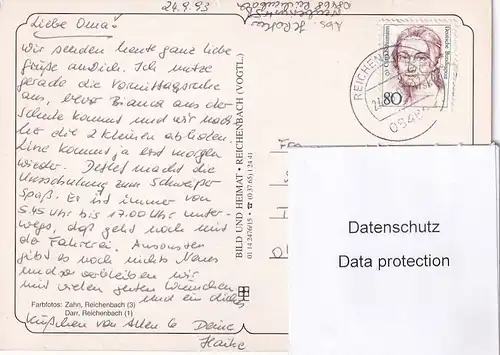 24.9.93
Liebe Oma!
wir senden heute ganz liebe
Grüße an dich. Ich nutze
gerade die Vormittagsruhe
aus, bevor Bianca aus der
Schule kommt und wir nach-
her die 2 kleinen abholen.
Line kommt ja erst morgen
wieder. Detlef macht die
Umschulung zum Schweißer
Spaß. Er ist immer von
5.45 Uhr bis 17.00 Uhr unter-
wegs, daß geht noch mit
der Fahrerei. Ansonsten
gibt es noch nichts Neues
und so verbleiben wir
mit vielen guten Wünschen
und ein dickes
Küßchen von Allen 6 Deine
Heike
Farbfotos: Zahn, Reichenbach (3)
Darr, Reichenbach (1)
BILD UND HEIMAT · REICHENBACH (VOGTL.)
01 14 2476/15 · ☎ (0 37 65) 1 24 41
Abs.
REICHENB
80
Datenschutz
Data protection